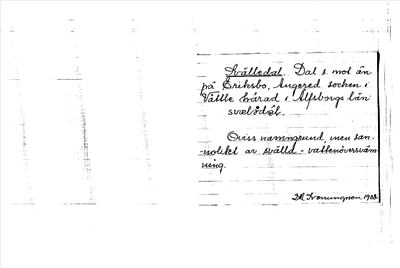 Svälledal. Dal s. mot ån
på Eriksbo, Angered socken i
Vättle härad i Älfsborgs län
Oviss namngrund, men san-
-nolikt av svälld - vattenöversväm
ning.
1933